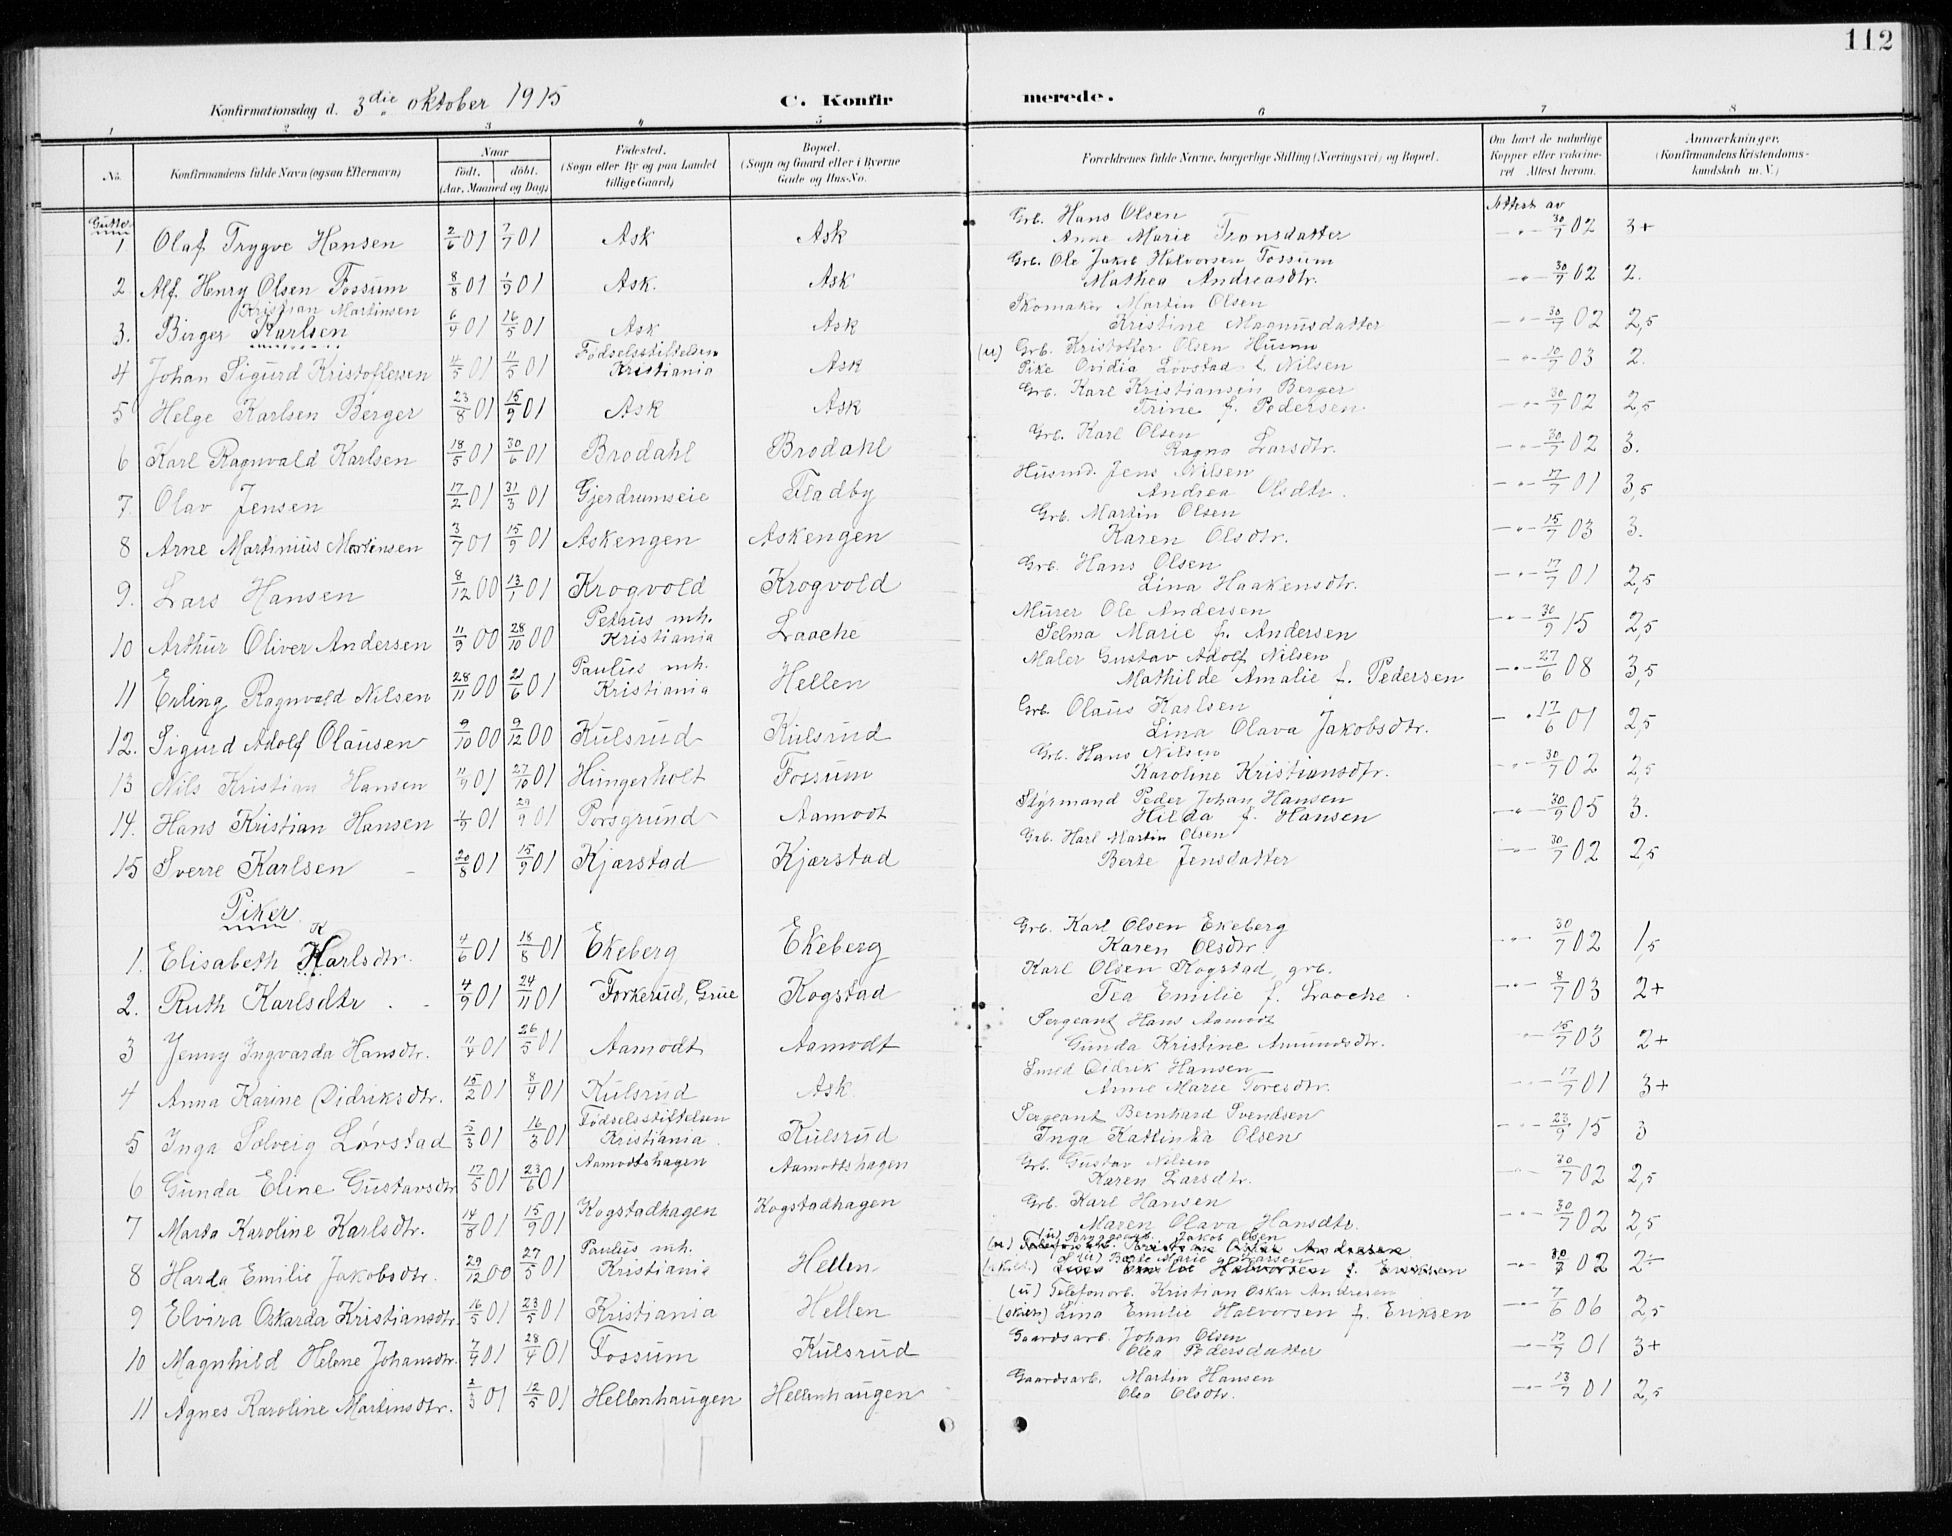 112
Konfirmationsdag d. 3die oktober 1915 C. Konfirmerede.
1 2 3 4 5 6 7 8
No. Konfirmandens fulde Navn (ogsaa Efternavn) Naar født. døbt. (Aar, Maaned og Dag) Fødested. (Sogn eller By og paa Landet tillige Gaard) Bopæl. (Sogn og Gaard eller i Byerne Gade og Hus-No. Forældrenes fulde Navne, borgerlige Stilling (Næringsvei) og Bopæl. Om havt de naturlige Kopper eller vakcineret Attest herom. Anmærkninger. (Konfirmandens Kristendomskundskab m. V.)
Gutter Attest av
1 Olaf Trygve Hansen 2/6 01 7/7 01 Ask Ask Grb. Hans Olsen Anne Marie Tronsdatter -„- 30/7 02 3+
2 Alf. Henry Olsen Fossum 8/8 01 1/9 01 Ask. Ask Grb. Ole Jakob Halvorsen Fossum Mathea Andreasdtr. -„- 30/7 02 2.
Kristian Martinsen
3. Birger Karlsen 6/4 01 16/5 01 Ask Ask Skomaker Martin Olsen Kristine Magnusdatter -„- 30/7 02 2,5
4 Johan Sigurd Kristoffersen 4/5 01 11/5 01 Fødselsstiftelsen Kristiania Ask (u) Grb. Kristoffer Olsen Husum Pike Ovidia Løvstad f. Nilsen -„- 10/7 03 2.
5 Helge Karlsen Berger 23/8 01 15/9 01 Ask Ask Grb. Karl Kristiansen Berger Trine f. Pedersen. -„- 30/7 02 2,5
6 Karl Ragnvald Karlsen 18/5 01 30/6 01 Brodahl Brodahl Grb. Karl Olsen Ragna Larsdtr. -„- 30/7 02 3.
7. Olav Jensen 17/2 01 31/3 01 Gjerdrumseie Fladby Husmd. Jens Nilsen Andrea Olsdtr. -„- 17/7 01 3,5
8 Arne Martinius Martinsen 3/7 01 15/9 01 Askengen Askengen Grb. Martin Olsen Karen Olsdtr. -„- 15/7 03 3.
9. Lars Hansen 8/12 00 13/1 01 Krogvold Krogvold Grb. Hans Olsen Lina Haakensdtr. -„- 17/7 01 2,5
10 Arthur Oliver Andersen 11/9 00 28/10 00 Petrus mh. Kristiania Laache Murer Ole Andersen Selma Marie f. Andersen -„- 30/9 15 2,5
11 Erling Ragnvald Nilsen 28/11 00 21/6 01 Paulus mh. Kristiania Hellen Maler Gustav Adolf Nilsen Mathilde Amalie f. Pedersen -„- 27/6 08 3,5
12. Sigurd Adolf Olausen 9/10 00 9/12 00 Kulsrud Kulsrud Grb. Olaus Karlsen Lina Olava Jakobsdtr. -„- 17/6 01 2,5
13 Nils Kristian Hansen 11/9 01 27/10 01 Hungerholt Fossum Grb. Hans Nilsen Karoline Kristiansdtr. -„- 30/7 02 2,5
14. Hans Kristian Hansen 4/9 01 29/9 01 Porsgrund Aamodt Styrmand Peder Johan Hansen Hilda f. Hansen -„- 30/9 05 3.
15 Sverre Karlsen 20/8 01 15/9 01 Kjærstad Kjærstad Grb. Karl Martin Olsen Berte Jensdatter -„- 30/7 02 2,5
Piker.
K
1. Elisabeth Karlsdtr. 4/6 01 18/8 01 Ekeberg Ekeberg Grb. Karl Olsen Ekeberg Karen Olsdtr. -„- 30/7 02 1,5
2. Ruth Karlsdtr 4/9 01 24/11 01 Forkerud, Grue Kogstad Karl Olsen Kogstad, grb. Tea Emilie f. Laache. -„- 8/7 03 2+
3 Jenny Ingvarda Hansdtr. 11/4 01 26/5 01 Aamodt Aamodt Sergeant Hans Aamodt Gunda Kristine Amundsdtr. -„- 15/7 03 2+
4 Anna Karine Didriksdtr. 15/2 01 8/4 01 Kulsrud Ask. Smed Didrik Hansen Anne Marie Toresdtr. -„- 17/7 01 3+
5 Inga Solveig Løvstad 5/3 01 16/3 01 Fødselsstiftelsen Kristiania. Kulsrud Sergeant Bernhard Svendsen Inga Kattinka Olsen -„- 23/9 15 3
6 Gunda Eline Gustavsdtr 17/5 01 23/6 01 Aamodtshagen Aamottshagen Grb. Gustav Nilsen Karen Larsdtr. -„- 30/7 02 2,5
7 Marta Karoline Karlsdtr. 14/8 01 15/9 01 Kogstadhagen Kogstadhagen Grb. Karl Hansen Maren Olava Hansdtr. -„- 30/7 02 2,5
8 Harda Emilie Jakobsdtr. 29/12 00 27/5 01 Paulus mh. Kristiania Hellen (u) Bryggearb. Jakob Olsen (u) Berte Marie Larsen -„- 30/7 02 2÷
9 Elvira Oskarda Kristiansdtr. 16/5 01 23/5 01 Kristiania Hellen (u) Telefonarb. Kristian Oskar Andresen (skilt) Lina Emilie Halvorsen f. Eriksen -„- 7/6 06 2,5
10 Magnhild Helene Johansdtr. 7/4 01 28/4 01 Fossum Kulsrud Gaardsarb. Johan Olsen Olea Pedersdatter -„- 17/7 01 3+
11 Agnes Karoline Martinsdtr. 2/3 01 12/5 01 Hellenhaugen Hellenhaugen Gaardsarb. Martin Hansen Olea Olsdtr. -„- 13/7 01 2,5